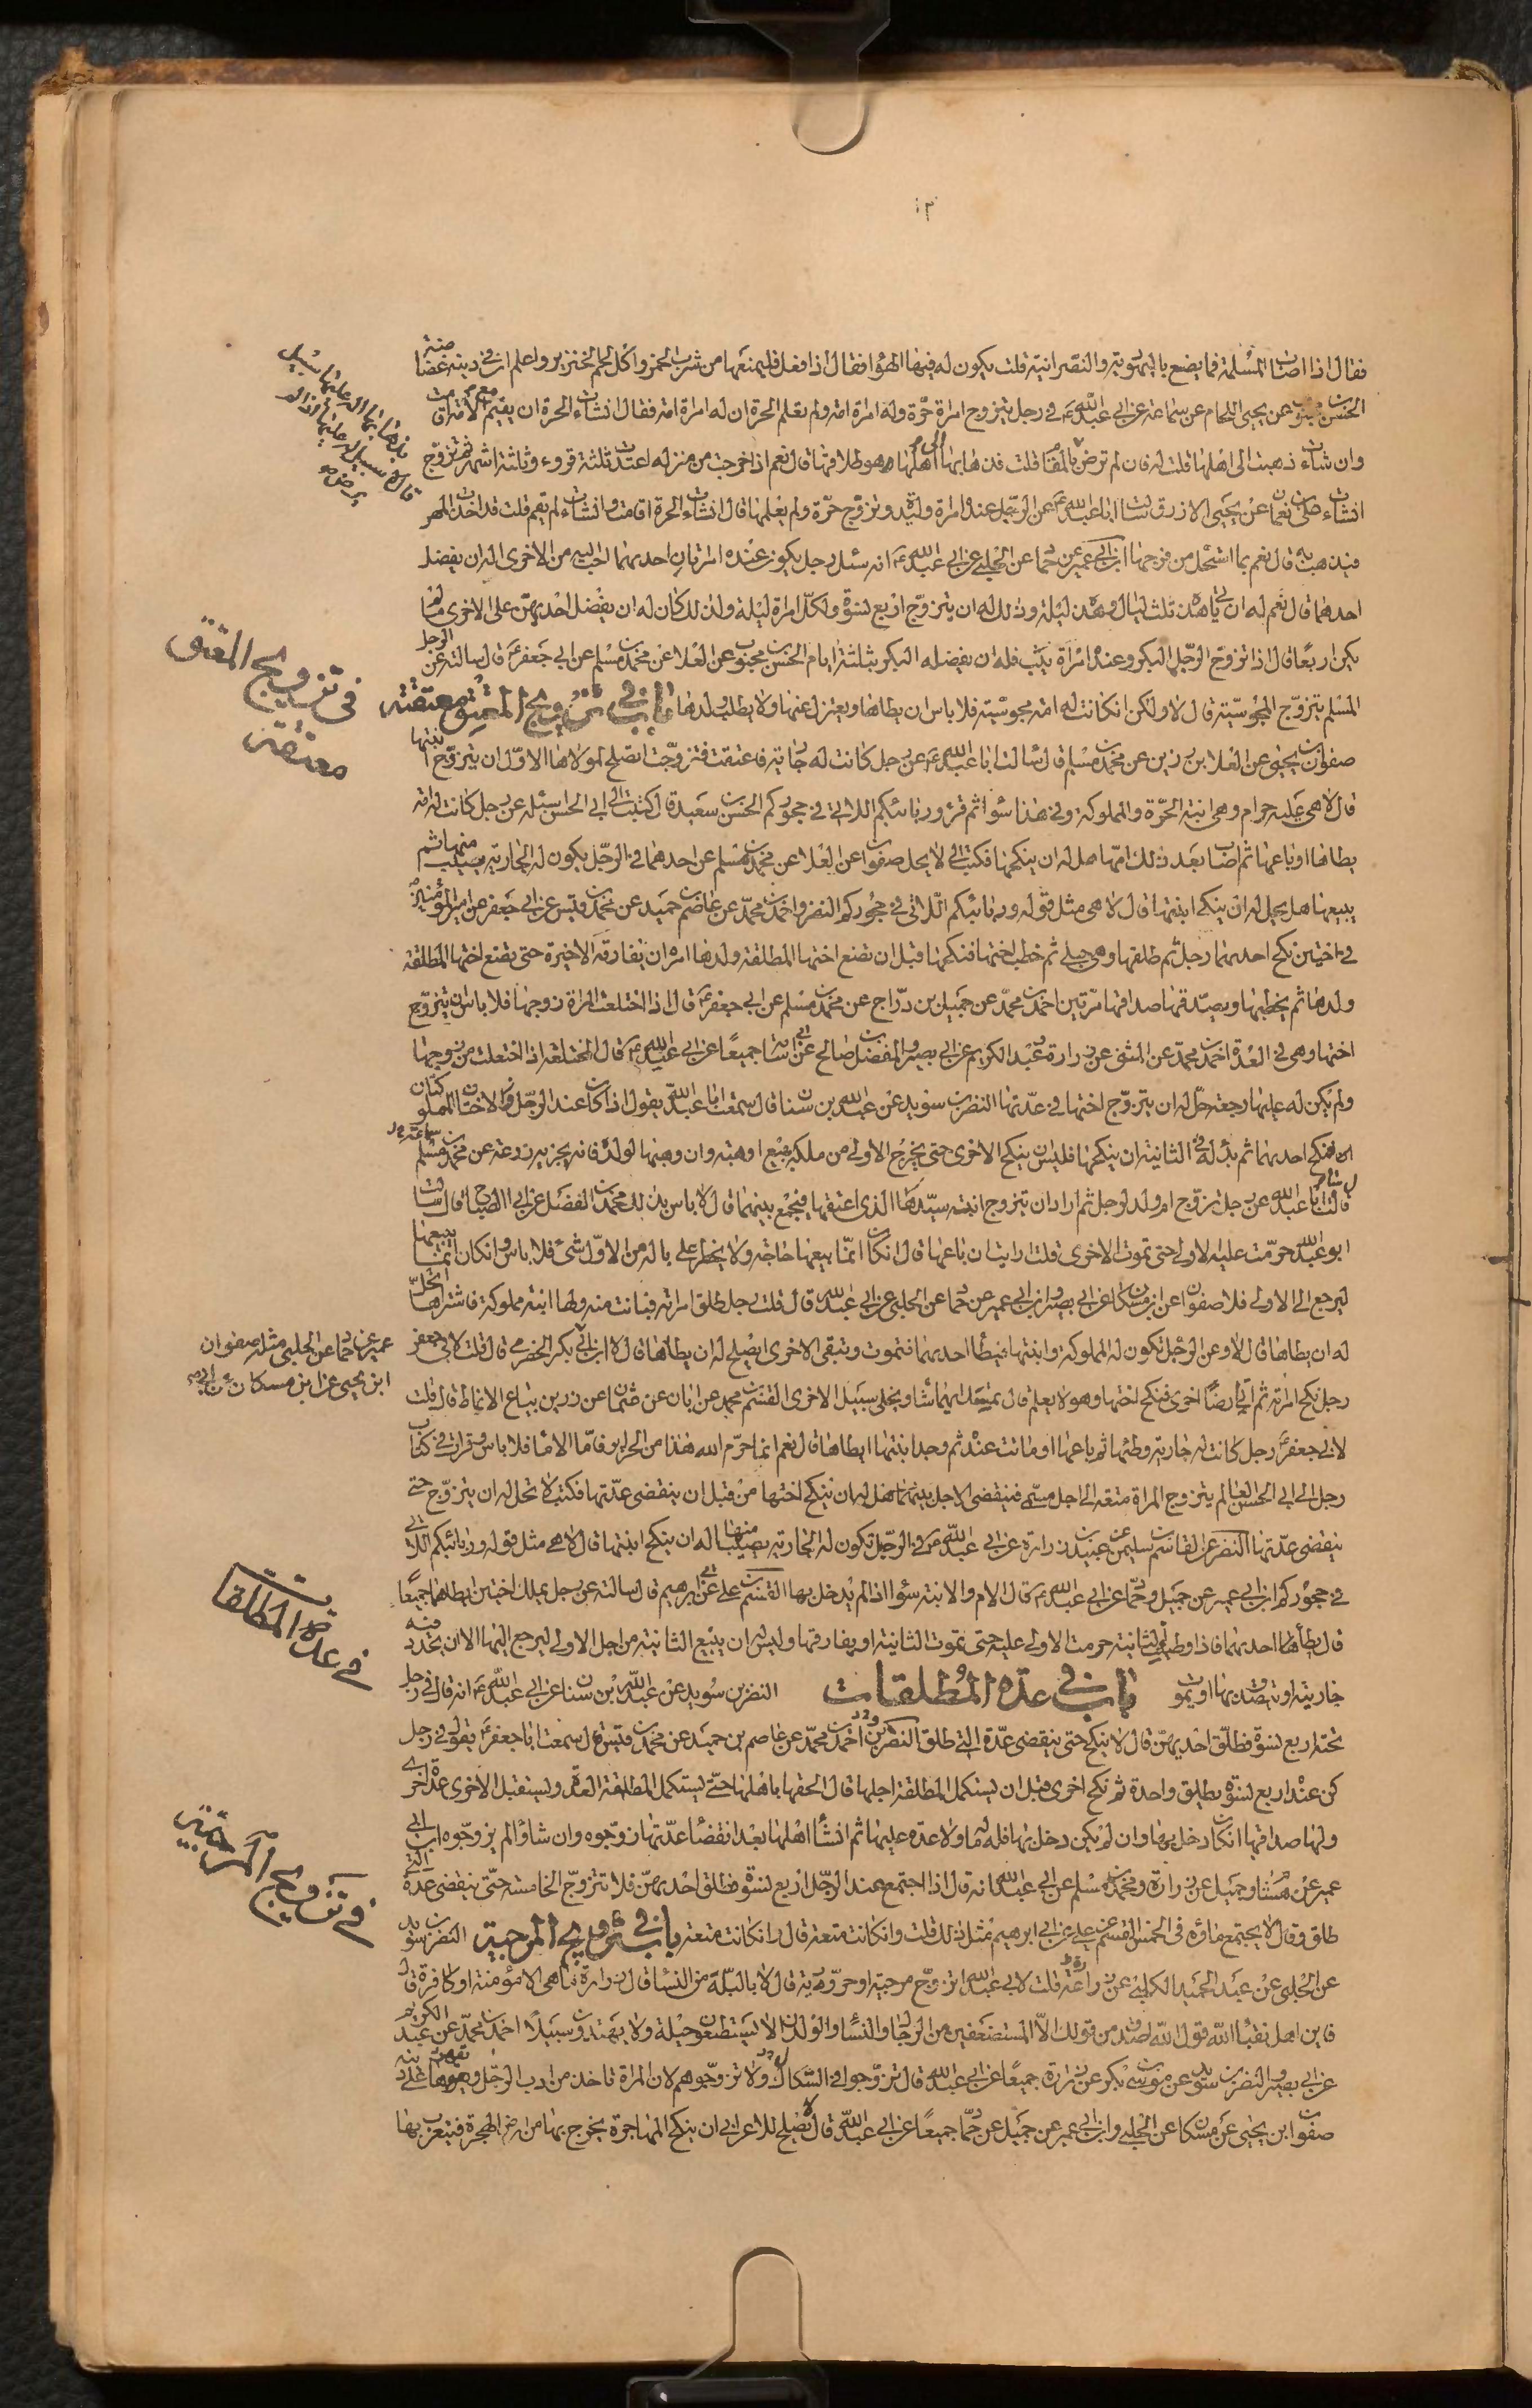 ١٣
فقال اذا اصاب المسلمة فما يصنع باليهودية والنصرانية قلت يكون له فيها الهوى فقال اذا فعل فليمنعها من شرب الخمر واكل لحم الخنزير واعلم ان في دينه غضاضة
الحسن بن محبوب عن يحيى اللحام عن سماعة عن ابي عبد الله ع في رجل يتزوج امراة حرة وله امراة امة ولم تعلم الحرة ان له امراة امة فقال ان شاءت الحرة ان تقيم مع الامة اقامت
وان شاءت ذهبت الى اهلها قلت له فان لم ترض بالمقام قلت فذهابها الى اهلها هو طلاقها قال نعم اذا خرجت من منزله اعتدت ثلثة قروء او ثلثة اشهر ثم تزوج
ان شاءت صفوان عن يحيى الازرق سالت ابا عبد الله ع عن الرجل عنده امراة وليدة وتزوج حرة ولم يعلمها قال ان شاءت الحرة اقامت وان شاءت لم تقم قلت قد اخذت المهر
فتذهب به قال نعم بما استحل من فرجها ابن ابي عمير عن حماد عن الحلبي عن ابي عبد الله ع انه سئل رجل يكون عنده امراتان احديهما احب اليه من الاخرى اله ان يفضل
احدهما قال نعم له ان ياتي هذه ثلث ليال وهذه ليلة وذلك له ان يتزوج اربع نسوة ولكل امراة ليلة ولذلك كان له ان يفضل احديهن على الاخرى ما لم
يكن اربعا قال اذا تزوج الرجل البكر وعنده امراة ثيب فله ان يفضله البكر بثلثة ايام الحسن بن محبوب عن العلا عن محمد بن مسلم عن ابي جعفر ع قال سالته عن الرجل
المسلم يتزوج المجوسية قال لا ولكن ان كانت له امة مجوسية فلا باس ان يطاها ويعزل عنها ولا يطلب ولدها باب في تزويج المعتق معتقته
صفوان بن يحيى عن العلا بن رزين عن محمد بن مسلم قال سالت ابا عبد الله ع عن رجل كانت له جارية فاعتقت فتزوجت ايصلح لمولاها الاول ان يتزوج ابنتها
قال لا هي عليه حرام وهي ابنة الحرة والمملوكة وفي هذا سواء ثم قرء وربائبكم اللاتي في حجوركم الحسين بن سعيد قال كتبت الى ابي الحسن اسئله عن رجل كانت له امة
يطاها اوباعها ثم اصاب بعد ذلك امها هل له ان ينكحها فكتب الي لا يحل صفوان عن العلا عن محمد بن مسلم عن احدهما في الرجل يكون له الجارية يصيب منها ثم
يبيعها هل يحل له ان ينكح ابنتها قال لا هي مثل قوله وربائبكم اللاتي في حجوركم النضر واحمد بن محمد عن عاصم بن حميد عن محمد بن قيس عن ابي جعفر عن امير المؤمنين ع
في اختين نكح احديهما رجل ثم طلقها وهي حبلى ثم خطب اختها فنكحها قبل ان تضع اختها المطلقة ولدها امره ان يفارق الاخيرة حتى تضع اختها المطلقة
ولدها ثم يخطبها ويصدقها صداقها مرتين احمد بن محمد عن جميل بن دراج عن محمد بن مسلم عن ابي جعفر ع قال اذا اختلعت المراة زوجها فلا باس ان يتزوج
اختها وهي في العدة احمد بن محمد عن المثنى عن زرارة وعبد الكريم عن ابي بصير والمفضل بن صالح عن ابي اسامة جميعا عن ابي عبد الله ع قال المختلعة اذا اختلعت من زوجها
ولم يكن له عليها رجعة حل له ان يتزوج اختها في عدتها النضر بن سويد عن عبد الله بن سنان قال سمعت ابا عبد الله يقول اذا كانت عند الرجل الاختان المملوكتان
فنكح احديهما ثم بدا له في الثانية ان ينكحها فليس ينكح الاخرى حتى يخرج الاولى من ملكه يبيع او هبة وان وهبها لولده فانه يجزيه زرعة عن سماعة عن محمد بن مسلم
قال سالت ابا عبد الله عن رجل تزوج ام ولد لرجل ثم اراد ان يتزوج ابنة سيدها الذي اعتقها فيجمع بينهما قال لا باس بذلك محمد بن الفضيل عن ابي الصباح قال سالت
ابو عبد الله حرمت عليه الاولى حتى تموت الاخرى قلت ارايت ان باعها قال ان كان انما يبيعها لحاجة ولا يخطر على باله من الاولى شئ فلا باس وان كان انما يبيعها
ليرجع الى الاولى فلا صفوان عن ابن مسكان عن ابي بصير وابن ابي عمير عن حماد عن الحلبي عن ابي عبد الله قال قلت رجل طلق امراته فبانت منه ولها ابنة مملوكة فاشتراها ايحل
له ان يطاها قال لا وعن الرجل تكون له المملوكة وابنتها فيطأ احديهما فتموت وتبقى الاخرى ايصلح له ان يطاها قال لا ابن ابي بكر الحضرمي قال قلت لابي جعفر
عمير عن حماد عن الحلبي مثله صفوان
ابن يحيى عن ابن مسكان
رجل نكح امراته ثم اتى ارضا اخرى فنكح اختها وهو لا يعلم قال يمسك ايتهما شاء ويخلي سبيل الاخرى القسم بن محمد عن ابان عن عثمان عن زرين بياع الانماط قال قلت
لابي جعفر ع رجل كانت له جارية وطئها ثم باعها او ماتت عنده ثم وجد ابنتها ايطاها قال نعم انما حرم الله هذا من الحراير فاما الاماء فلا باس وقرات في كتاب
رجل الى ابي الحسن العالم يتزوج المراة متعة الى اجل مسمى فينقضي الاجل بينهما هل له ان ينكح اختها من قبل ان ينقضي عدتها فكتب لا تحل له ان يتزوج حتى
ينقضي عدتها النضر عن القاسم بن سليمن عن عبيد بن زرارة عن ابي عبد الله ع في الرجل تكون له الجارية يصيب منها اله ان ينكح ابنتها قال لا هي مثل قوله وربائبكم اللاتي
في حجوركم ابن ابي عمير عن جميل وحماد عن ابي عبد الله ع قال الام والابنة سواء اذا لم يدخل بها القسم بن علي عن ابي ابرهيم قال سالته عن رجل يملك اختين ايطاهما جميعا
قال يطأ احديهما فاذا وطئ الثانية حرمت الاولى عليه حتى تموت الثانية او يفارقها وليس له ان يبيع الثانية من اجل الاولى ليرجع اليها الا ان يحدد فيه
جاريته او يتصدق بها او يموت باب في عدة المطلقات النضر بن سويد عن عبد الله بن سنان عن ابي عبد الله ع انه قال في رجل
تحته اربع نسوة فطلق احديهن قال لا ينكح حتى ينقضي عدة التي طلق النضر بن سويد واحمد بن محمد عن عاصم بن حميد عن محمد بن قيس قال سمعت ابا جعفر ع يقول في رجل
كن عنده اربع نسوة يطلق واحدة ثم نكح اخرى قبل ان يستكمل المطلقة اجلها قال الحقها باهلها حتى يستكمل المطلقة العدة وليستقبل الاخرى عدة اخرى
ولها صداقها ان كان دخل بها وان لم يكن دخل بها فله ماله ولا عدة عليها ثم ان شاء اهلها بعد انقضاء عدتها زوجوه وان شاؤا لم يزوجوه ابن ابي
عمير عن هشام وجميل عن زرارة ومحمد بن مسلم عن ابي عبد الله انه قال اذا اجتمع عند الرجل اربع نسوة فطلق احديهن فلا تتزوج الخامسة حتى ينقضي عدة التي
طلق وقال لا يجتمع ماؤه في الخمس القسم عن علي عن ابي ابرهيم مثل ذلك قلت وان كانت متعة قال وان كانت متعة باب في تزويج المرجية النضر بن سويد
عن الحلبي عن عبد الحميد الكلبي عن زرارة قلت لابي عبد الله اتزوج مرجية او حرورية قال لا عليك بالبله من النساء قال زرارة ما هي الا مؤمنة او كافرة قال
فاين اهل ثنيا الله قول الله اصدق من قولك الا المستضعفين من الرجال والنساء والولدان لا يستطيعون حيلة ولا يهتدون سبيلا احمد بن محمد عن عبد الكريم
عن ابي بصير والنضر بن سويد عن موسى بن بكر عن زرارة جميعا عن ابي عبد الله قال تزوجوا في الشكاك ولا تزوجوهم لان المراة تاخذ من ادب الرجل ويقهرها على دينه
صفوان ابن يحيى عن ابن مسكان عن الحلبي وابن ابي عمير عن جميل عن حماد جميعا عن ابي عبد الله قال لا يصلح للاعرابي ان ينكح المهاجرة يخرج بها من ارض الهجرة فيتعرب بها
في تزويج المعتق
معتقته
في عدة المطلقات
في تزويج المرجية